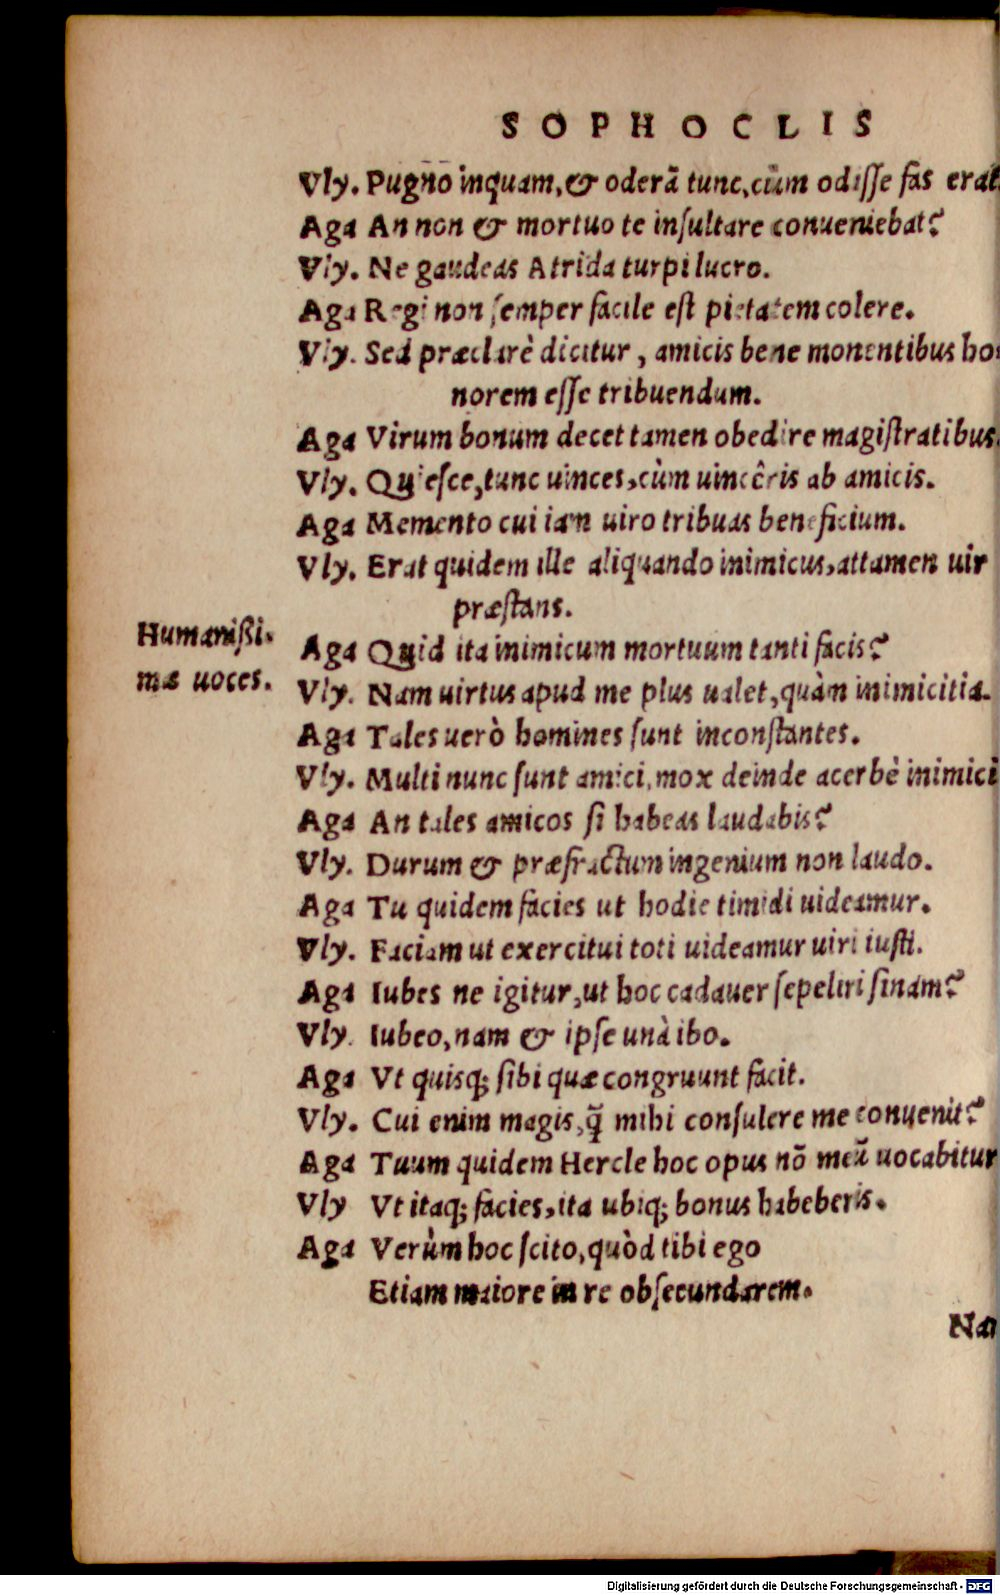 SOPHOCLIS
Vly. Pugno inquam, & oderā tunc, cùm odisse fas erat.
Aga An non & mortuo te insultare conueniebat?
Vly. Ne gaudeas Atrida turpi lucro.
Aga Regi non semper facile est pietatem colere.
Vly. Sed præclarè dicitur, amicis bene monentibus ho⸗
norem esse tribuendum.
Aga Virum bonum decet tamen obedire magistratibus.
Vly. Quiesce, tunc uinces, cùm uincêris ab amicis.
Aga Memento cui iam uiro tribuas beneficium.
Vly. Erat quidem ille aliquando inimicus, attamen uir
præstans.
Humanißi⸗
mæ uoces.
Aga Quid ita inimicum mortuum tanti facis?
Vly. Nam uirtus apud me plus ualet, quàm inimicitia.
Aga Tales uerò homines sunt inconstantes.
Vly. Multi nunc sunt amici, mox deinde acerbè inimici
Aga An tales amicos si habeas laudabis?
Vly. Durum & præfractum ingenium non laudo.
Aga Tu quidem facies ut hodie timidi uideamur.
Vly. Faciam ut exercitui toti uideamur uiri iusti.
Aga Iubes ne igitur, ut hoc cadauer sepeliri sinam?
Vly. Iubeo, nam & ipse unà ibo.
Aga Vt quisq; sibi quæ congruunt facit.
Vly. Cui enim magis, q̃ mihi consulere me conuenit?
Aga Tuum quidem Hercle hoc opus nō meū uocabitur
Vly Vt itaq; facies, ita ubiq; bonus habeberis.
Aga Verùm hoc scito, quòd tibi ego
Etiam maiore in re obsecundarem.
Digitalisierung gefördert durch die Deutsche Forschungsgemeinschaft - DFG